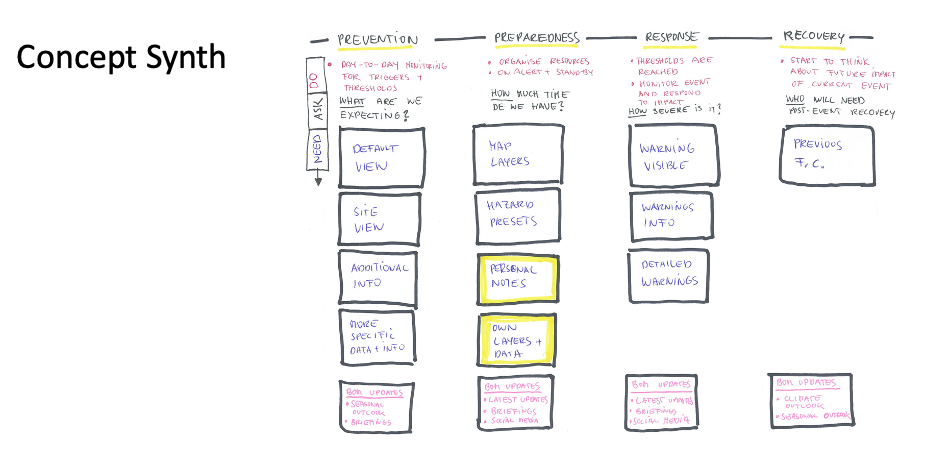 Concept Synth
PREVENTION
PREPAREDNESS
RESPONSE
RECOVERY
DO
ASK
NEED
• DAY-TO-DAY MONITORING
FOR TRIGGERS +
THRESHOLDS
WHAT ARE WE
EXPECTING?
• ORGANISE RESOURCES
• ON ALERT + STANDBY
HOW MUCH TIME
DE WE HAVE?
• THRESHOLDS ARE
REACHED
• MONITOR EVENT
AND RESPOND
TO IMPACT
HOW SEVERE IS IT?
• START TO THINK
ABOUT FUTURE IMPACT
OF CURRENT EVENT
WHO WILL NEED
POST-EVENT RECOVERY
DEFAULT
VIEW
SITE
VIEW
ADDITIONAL
INFO
MORE
SPECIFIC
DATA + INFO
BOM UPDATES
• SEASONAL
OUTLOOK
• BRIEFINGS
MAP
LAYERS
HAZARD
PRESETS
PERSONAL
NOTES
OWN
LAYERS +
DATA
BOM UPDATES
• LATEST UPDATES
• BRIEFINGS
• SOCIAL MEDIA
WARNING
VISIBLE
WARNINGS
INFO
DETAILED
WARNINGS
BOM UPDATES
• LATEST UPDATES
• BRIEFINGS
• SOCIAL MEDIA
PREVIOUS
F.C.
BOM UPDATES
• CLIMATE
OUTLOOK
• SEASONAL OUTLOOK